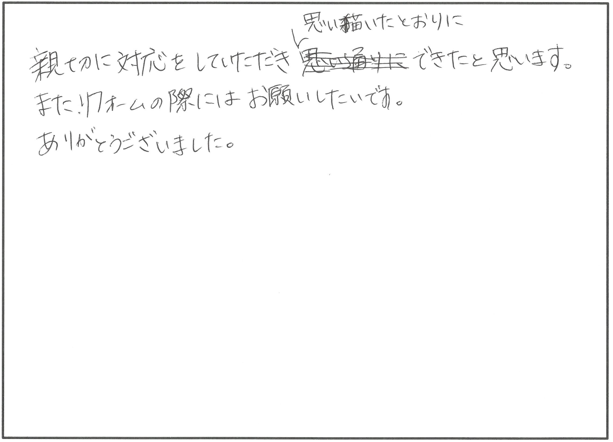 思い描いたとおりに
親切に対応をしていただき 思い通りに できたと思います。
また、リフォームの際にはお願いしたいです。
ありがとうございました。